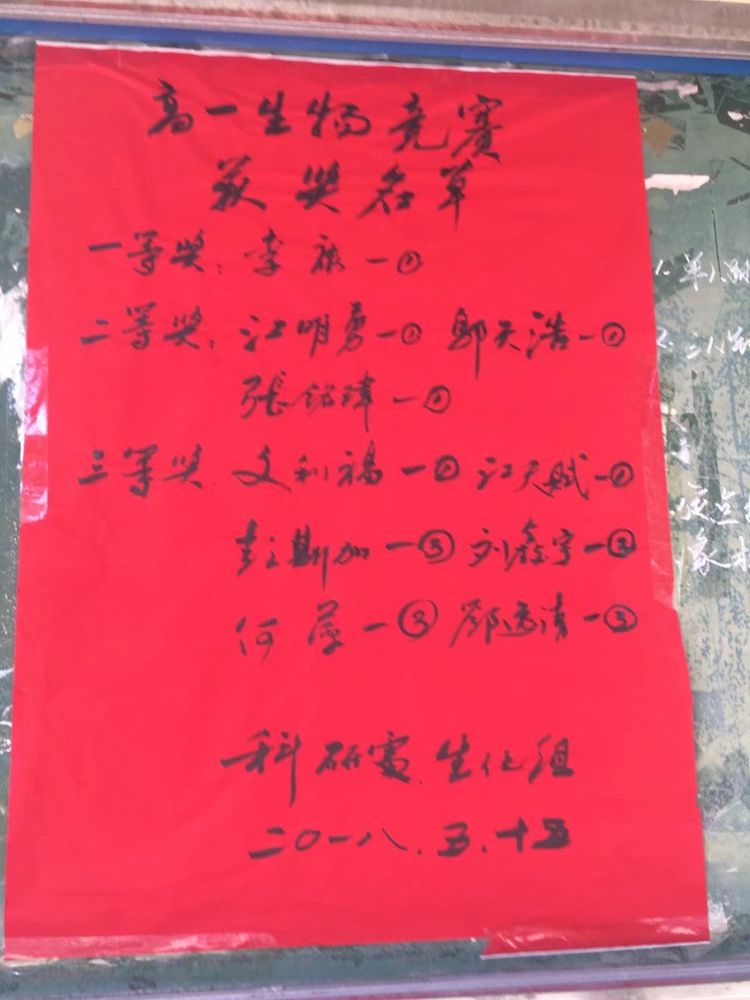 高一生物竞赛
获奖名单
一等奖: 李 旅 一①
二等奖: 江明勇 一① 鄢天浩 一①
張铭瑋 一①
三等奖 文利福 一① 江天赋 一①
彭斯加 一⑤ 刘鑫宇 一②
何 萍 一③ 鄢远清 一③
科研室、生化组
二〇一八.五.十五